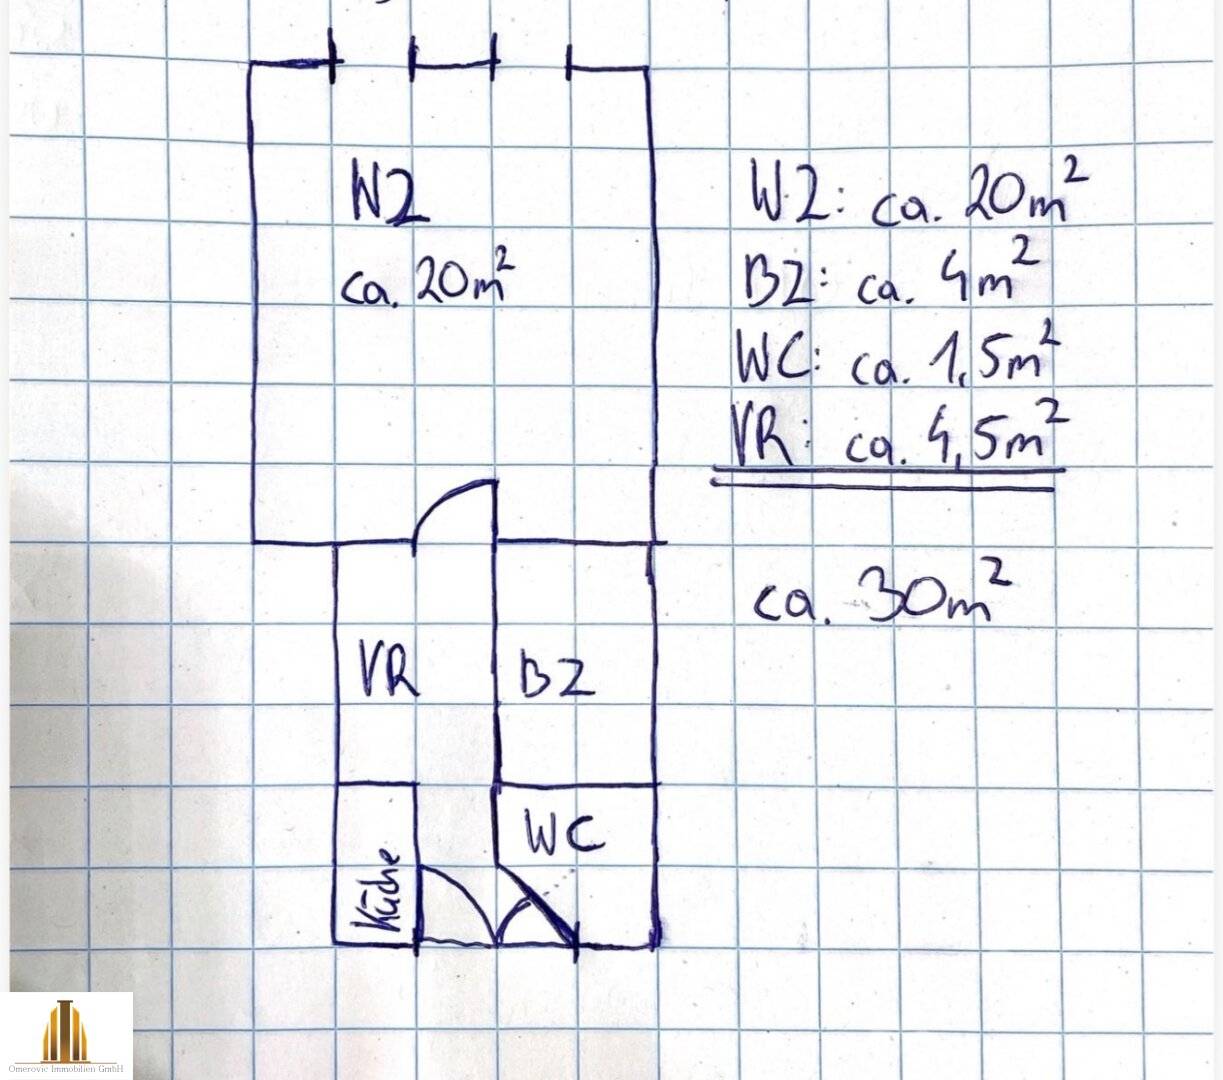 WZ
ca. 20m²
WZ: ca. 20m²
BZ: ca. 4m²
WC: ca. 1,5m²
VR: ca. 4,5m²
ca. 30m²
VR
BZ
WC
Küche
Omerovic Immobilien GmbH